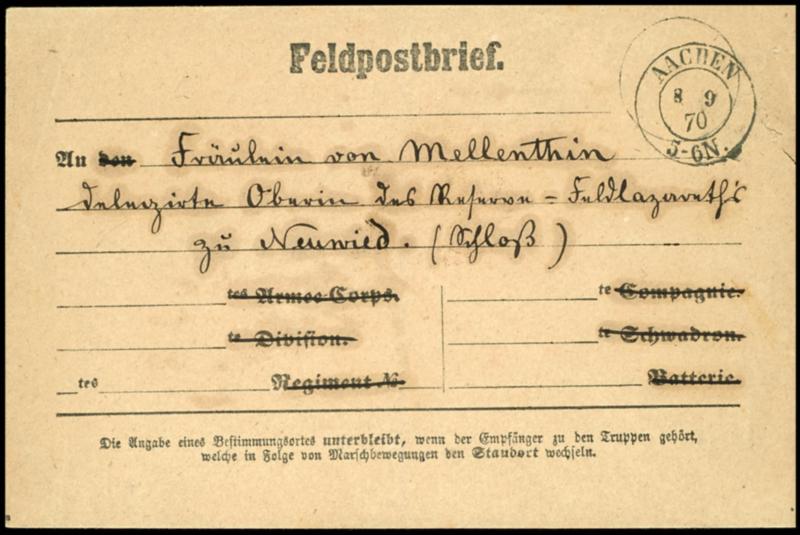 Feldpostbrief.
AACHEN
8 9
70
5-6N.
An den Fräulein von Mellenthin
delegirte Oberin des Reserve-Feldlazareth's
zu Neuwied. (Schloß)
tes Armee-Corps.
te Compagnie.
te Division.
te Schwadron.
tes Regiment №
Batterie.
Die Angabe eines Bestimmungsortes unterbleibt, wenn der Empfänger zu den Truppen gehört,
welche in Folge von Marschbewegungen den Standort wechseln.